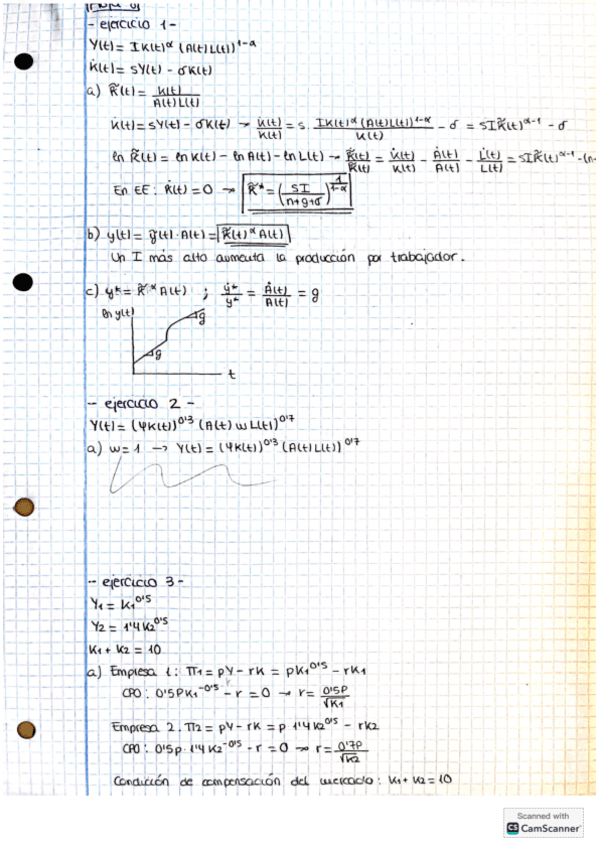 - ejercicio 1 -
Y(t) = I K(t)^α (A(t)L(t))^1-α
K̇(t) = sY(t) - δK(t)
a) K̃(t) = K(t) / A(t)L(t)
K̇(t) = sY(t) - δK(t) → K̇(t)/K(t) = s · I K(t)^α (A(t)L(t))^1-α / K(t) - δ = sI K̃(t)^α-1 - δ
ln K̃(t) = ln K(t) - ln A(t) - ln L(t) → K̃̇(t)/K̃(t) = K̇(t)/K(t) - Ȧ(t)/A(t) - L̇(t)/L(t) = sI K̃(t)^α-1 - (n+
En EE: K̇(t) = 0 → K̃* = (sI / n+g+δ)^1/1-α
b) y(t) = ỹ(t) · A(t) = K̃(t)^α A(t)
Un I más alto aumenta la producción por trabajador.
c) y* = K̃*^α A(t) ; ẏ*/y* = Ȧ(t)/A(t) = g
ln y(t)
g
g
t
- ejercicio 2 -
Y(t) = (ΨK(t))^0'3 (A(t) w L(t))^0'7
a) w = 1 → Y(t) = (ΨK(t))^0'3 (A(t)L(t))^0'7
- ejercicio 3 -
Y1 = K1^0'5
Y2 = 1'4 K2^0'5
K1 + K2 = 10
a) Empresa 1: Π1 = pY - rK = pK1^0'5 - rK1
CPO: 0'5PK1^-0'5 - r = 0 → r = 0'5P / √K1
Empresa 2: Π2 = pY - rK = p · 1'4 K2^0'5 - rK2
CPO: 0'5p · 1'4 K2^-0'5 - r = 0 → r = 0'7P / √K2
Condición de compensación del mercado: K1 + K2 = 10
Scanned with
CS CamScanner